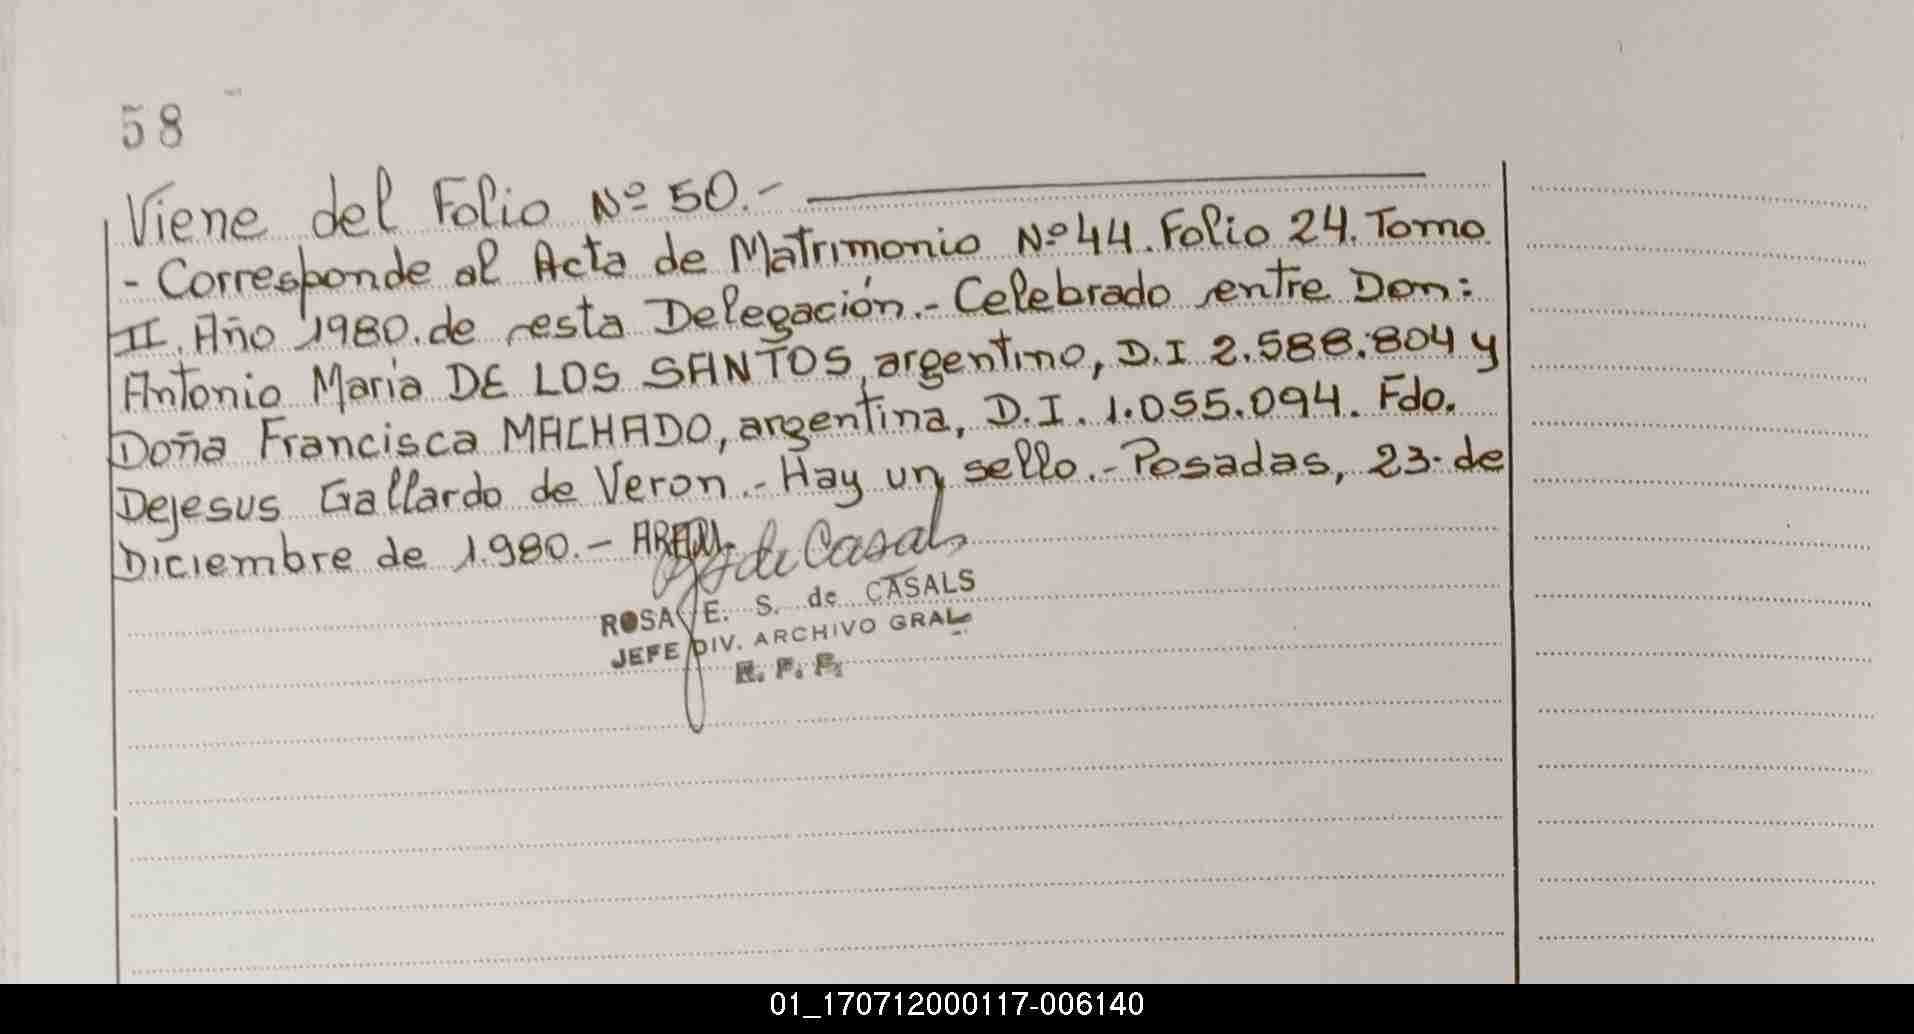 58
Viene del Folio Nº 50.-
- Corresponde al Acta de Matrimonio Nº 44. Folio 24. Tomo
II. Año 1980. de esta Delegación.- Celebrado entre Don:
Antonio Maria DE LOS SANTOS, argentino, D.I 2.588.804 y
Doña Francisca MACHADO, argentina, D.I. 1.055.094. Fdo.
Dejesus Gallardo de Veron.- Hay un sello.- Posadas, 23 de
Diciembre de 1.980.-
de Casals
ROSA E. S. de CASALS
JEFE DIV. ARCHIVO GRAL.
01_170712000117-006140